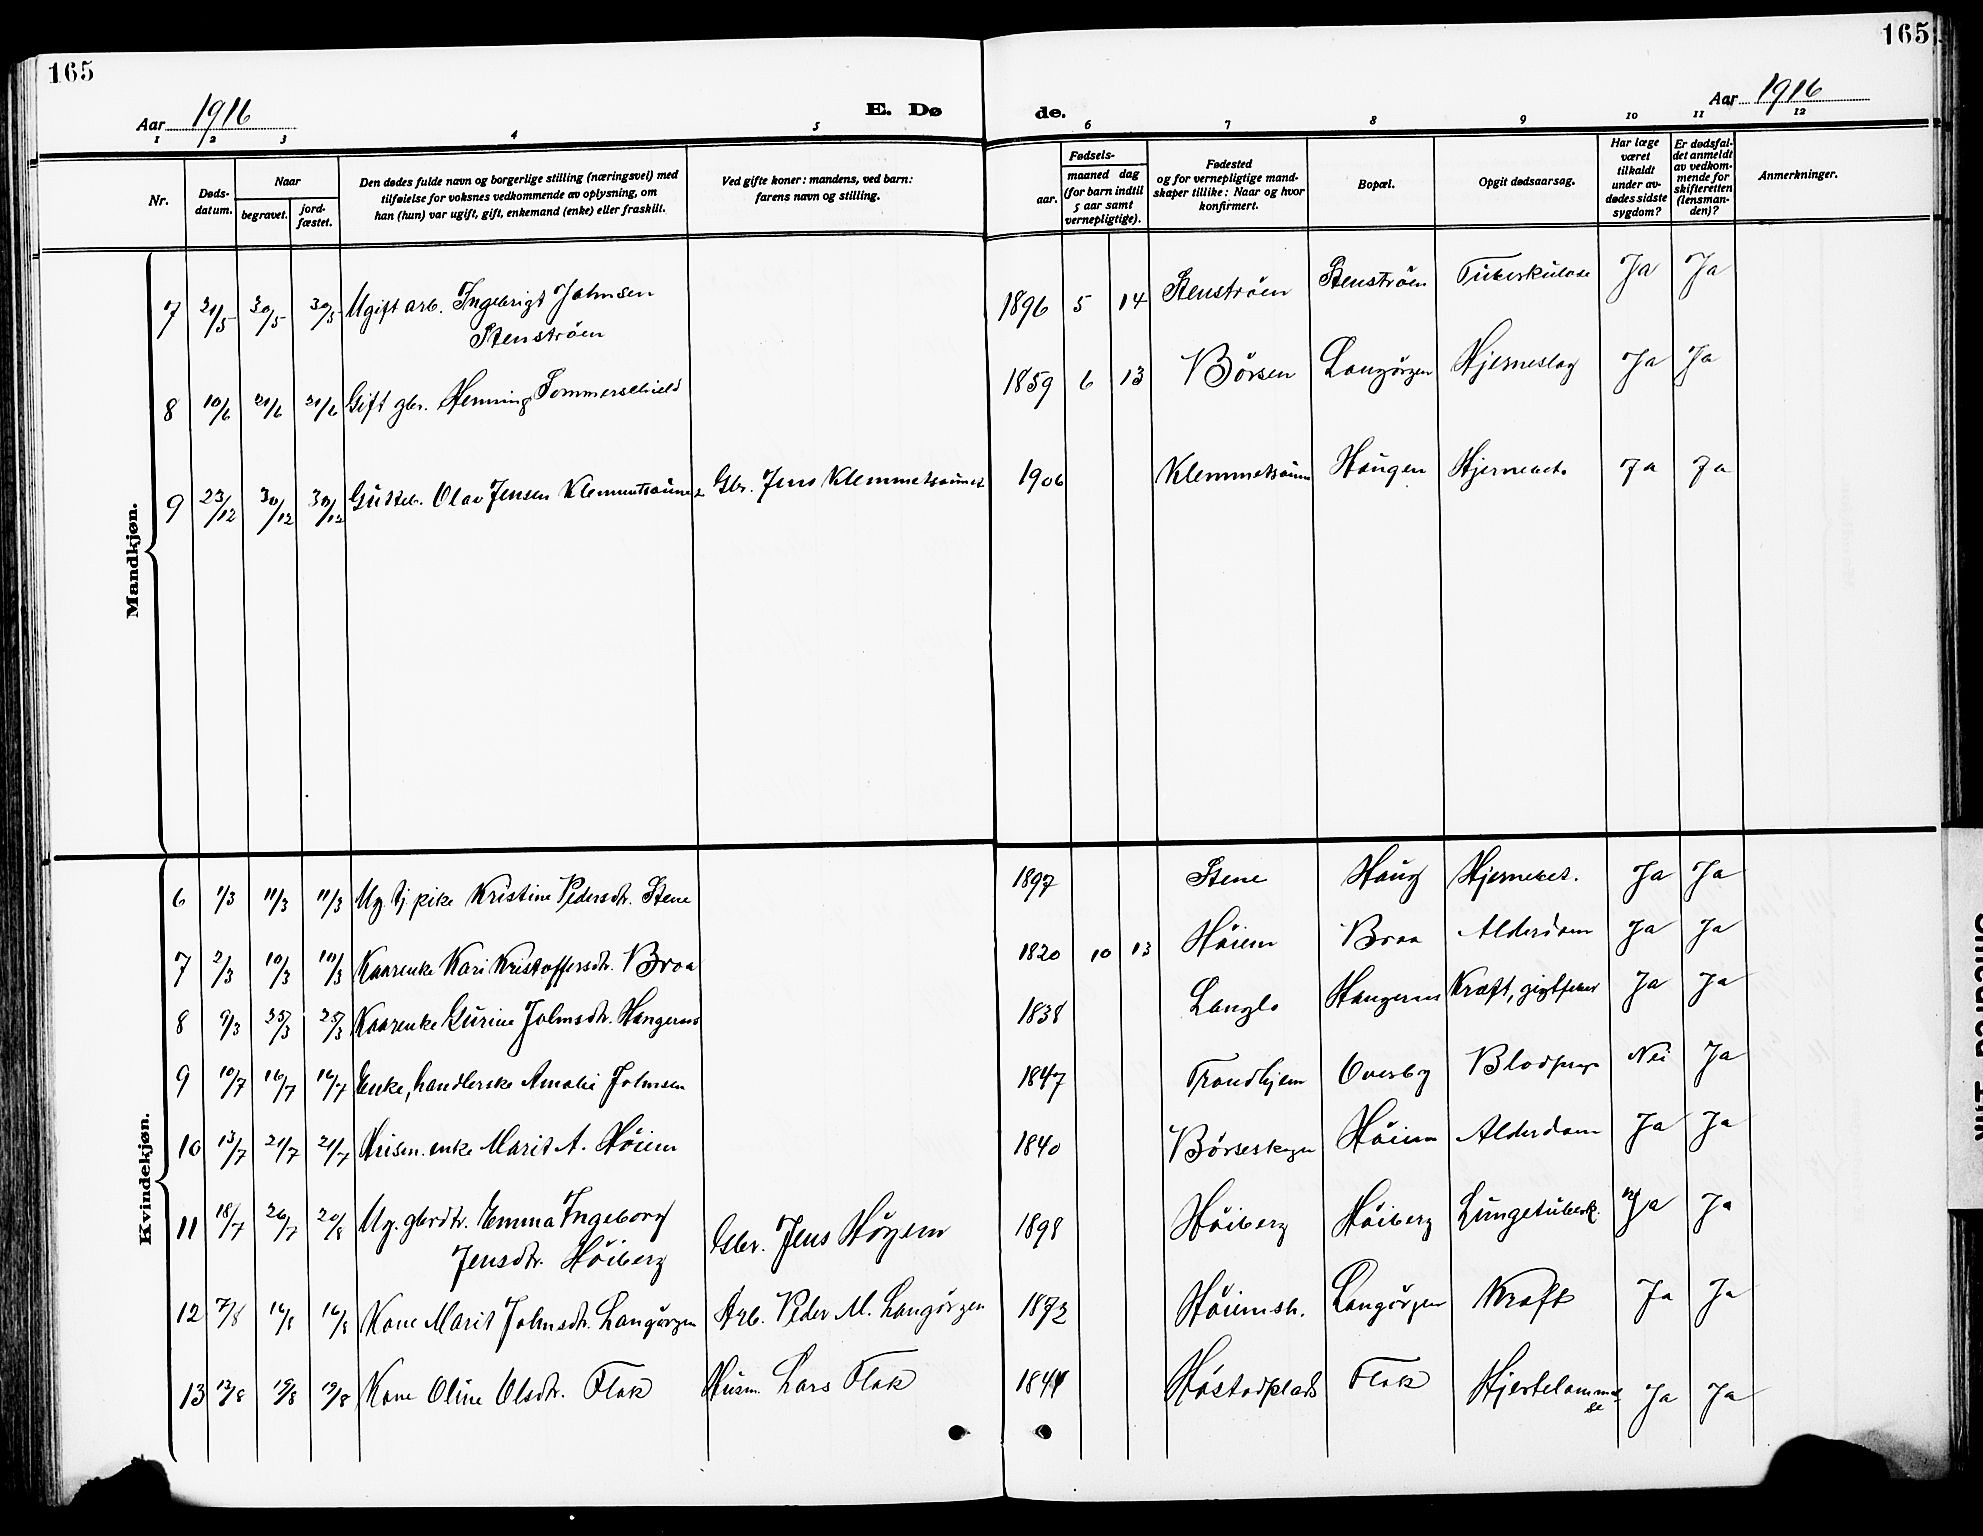 165
165
Aar 1916
E. Dø
de.
Aar 1916
1 2 3 4 5 6 7 8 9 10 11 12
Nr.
Døds-datum.
Naar
begravet.
jord-fæstet.
Den dødes fulde navn og borgerlige stilling (næringsvei) med
tilføielse for voksnes vedkommende av oplysning, om
han (hun) var ugift, gift, enkemand (enke) eller fraskilt.
Ved gifte koner: mandens, ved barn:
farens navn og stilling.
Fødsels-
aar.
maaned dag
(for barn indtil
5 aar samt
vernepligtige).
Fødested
og for vernepligtige mand-
skaper tillike: Naar og hvor
konfirmert.
Bopæl.
Opgit dødsaarsag.
Har læge
været
tilkaldt
under av-
dødes sidste
sygdom?
Er dødsfal-
det anmeldt
av vedkom-
mende for
skifteretten
(lensman-
den)?
Anmerkninger.
Mandkjøn.
7 21/5 30/5 30/5 Ugift arb. Ingebrigt Johnsen 1896 5 14 Stenstrøen Stenstrøen Tuberkulose Ja Ja
Stenstrøen
8 10/6 21/6 21/6 Gift gbr. Henning Sommerschield 1859 6 13 Børsen Langørgen Hjerneslag Ja Ja
9 23/12 30/12 30/12 Gutteb. Olav Jensen Klemmetsaunet Gbr. Jens Klemmetsaunet 1906 Klemmetsaun Haugen Hjernebet. Ja Ja
Kvindekjøn.
6 1/3 11/3 11/3 Ug. tj. pike Kristine Pedersdtr. Stene 1897 Stene Haug Hjernebet. Ja Ja
7 2/3 10/3 10/3 Kaarenke Kari Kristoffersdtr. Braa 1820 10 13 Høiem Braa Alderdom Ja Ja
8 9/3 25/3 25/3 Kaarenke Gurine Johnsdtr. Hangeraas 1838 Langlo Hangeraas Kræft, gigtfeber Ja Ja
9 10/7 16/7 16/7 Enke, handlerske Amalie Johnsen 1847 Trondhjem Overby Blodprop Nei Ja
10 13/7 21/7 21/7 Husm. enke Marit A. Høiem 1840 Børseskogn Høiem Alderdom Ja Ja
11 18/7 26/7 20/8 Ug. gbrdtr. Emma Ingeborg Gbr. Jens Høgem 1898 Høiberg Høiberg Lungetuberk. Ja Ja
Jensdtr. Høiberg
12 7/8 16/8 16/8 Kone Marit Johnsdtr. Langørgen Arb. Peder M. Langørgen 1872 Høiemsh. Langørgen Kræft Ja Ja
13 12/8 19/8 19/8 Kone Oline Olsdtr. Flak Husm. Lars Flak 1844 Høstadplads Flak Hjertelammel-
se Ja Ja